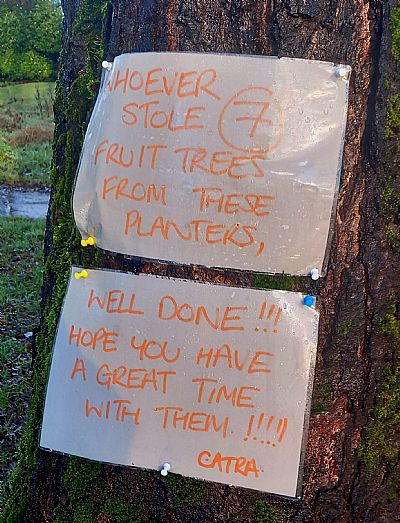 WHOEVER
STOLE 7
FRUIT TREES
FROM THESE
PLANTERS,
WELL DONE!!!
HOPE YOU HAVE
A GREAT TIME
WITH THEM.!!!!!
CATRA